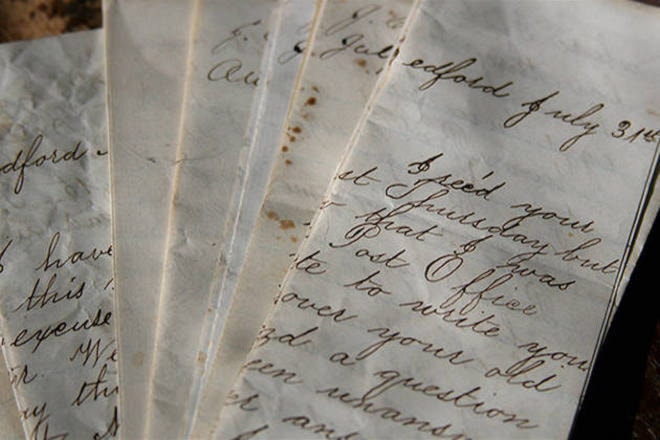 dford
I have
this
excuse
r. We
ay th
J.
Au
J.
J. Jul
edford July 31st
I rec'd your
st Thursday but
that I was
Post Office
te to write you
over your old
nd a question
een unansw
er and